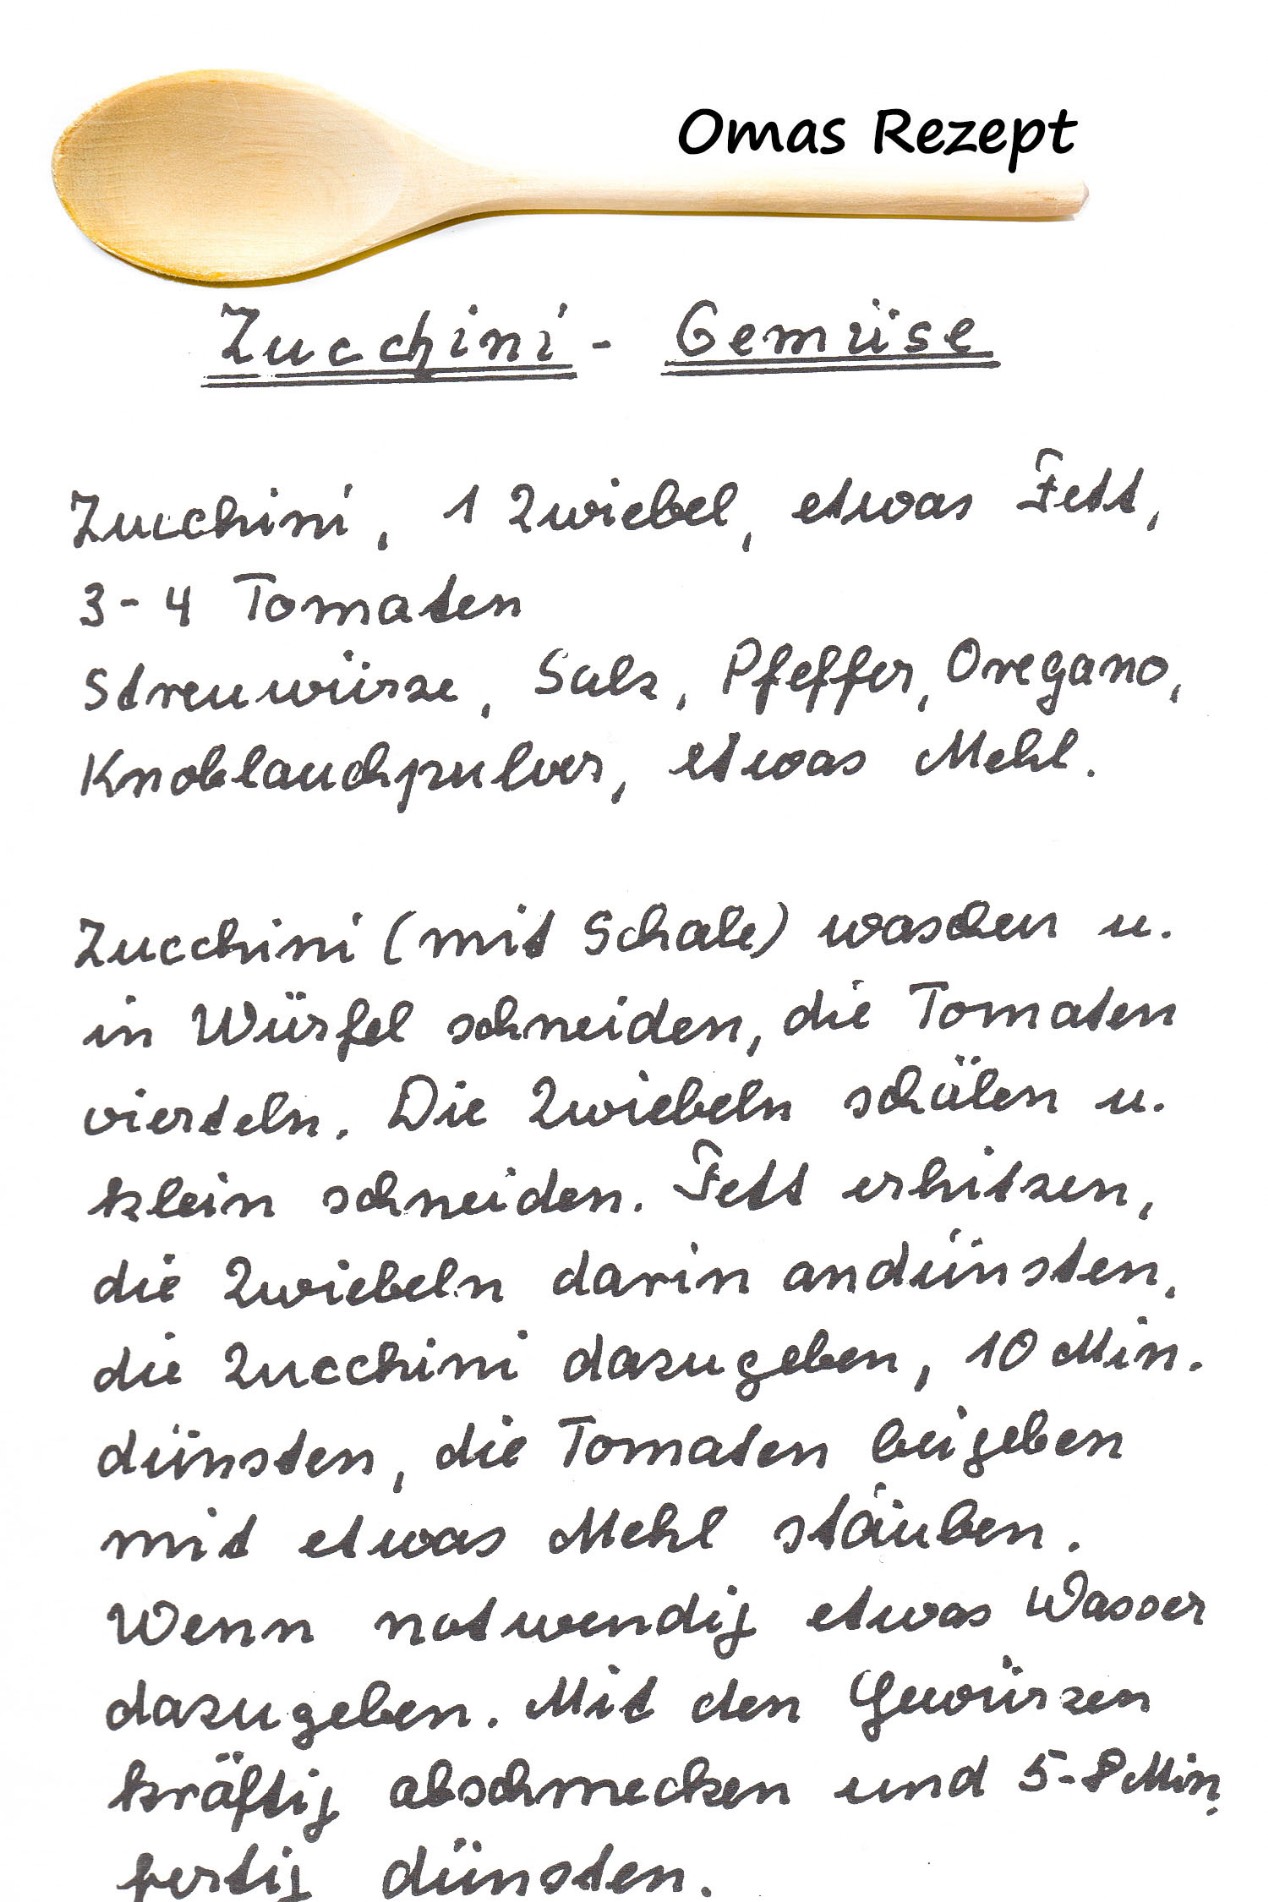 Omas Rezept
Zucchini - Gemüse
Zucchini, 1 Zwiebel, etwas Fett,
3-4 Tomaten
Streuwürze, Salz, Pfeffer, Oregano,
Knoblauchpulver, etwas Mehl.
Zucchini (mit Schale) waschen u.
in Würfel schneiden, die Tomaten
vierteln. Die Zwiebeln schälen u.
klein schneiden. Fett erhitzen,
die Zwiebeln darin andünsten,
die Zucchini dazugeben, 10 Min.
dünsten, die Tomaten beigeben
mit etwas Mehl stäuben.
Wenn notwendig etwas Wasser
dazugeben. Mit den Gewürzen
kräftig abschmecken und 5-8 Min.
fertig dünsten.